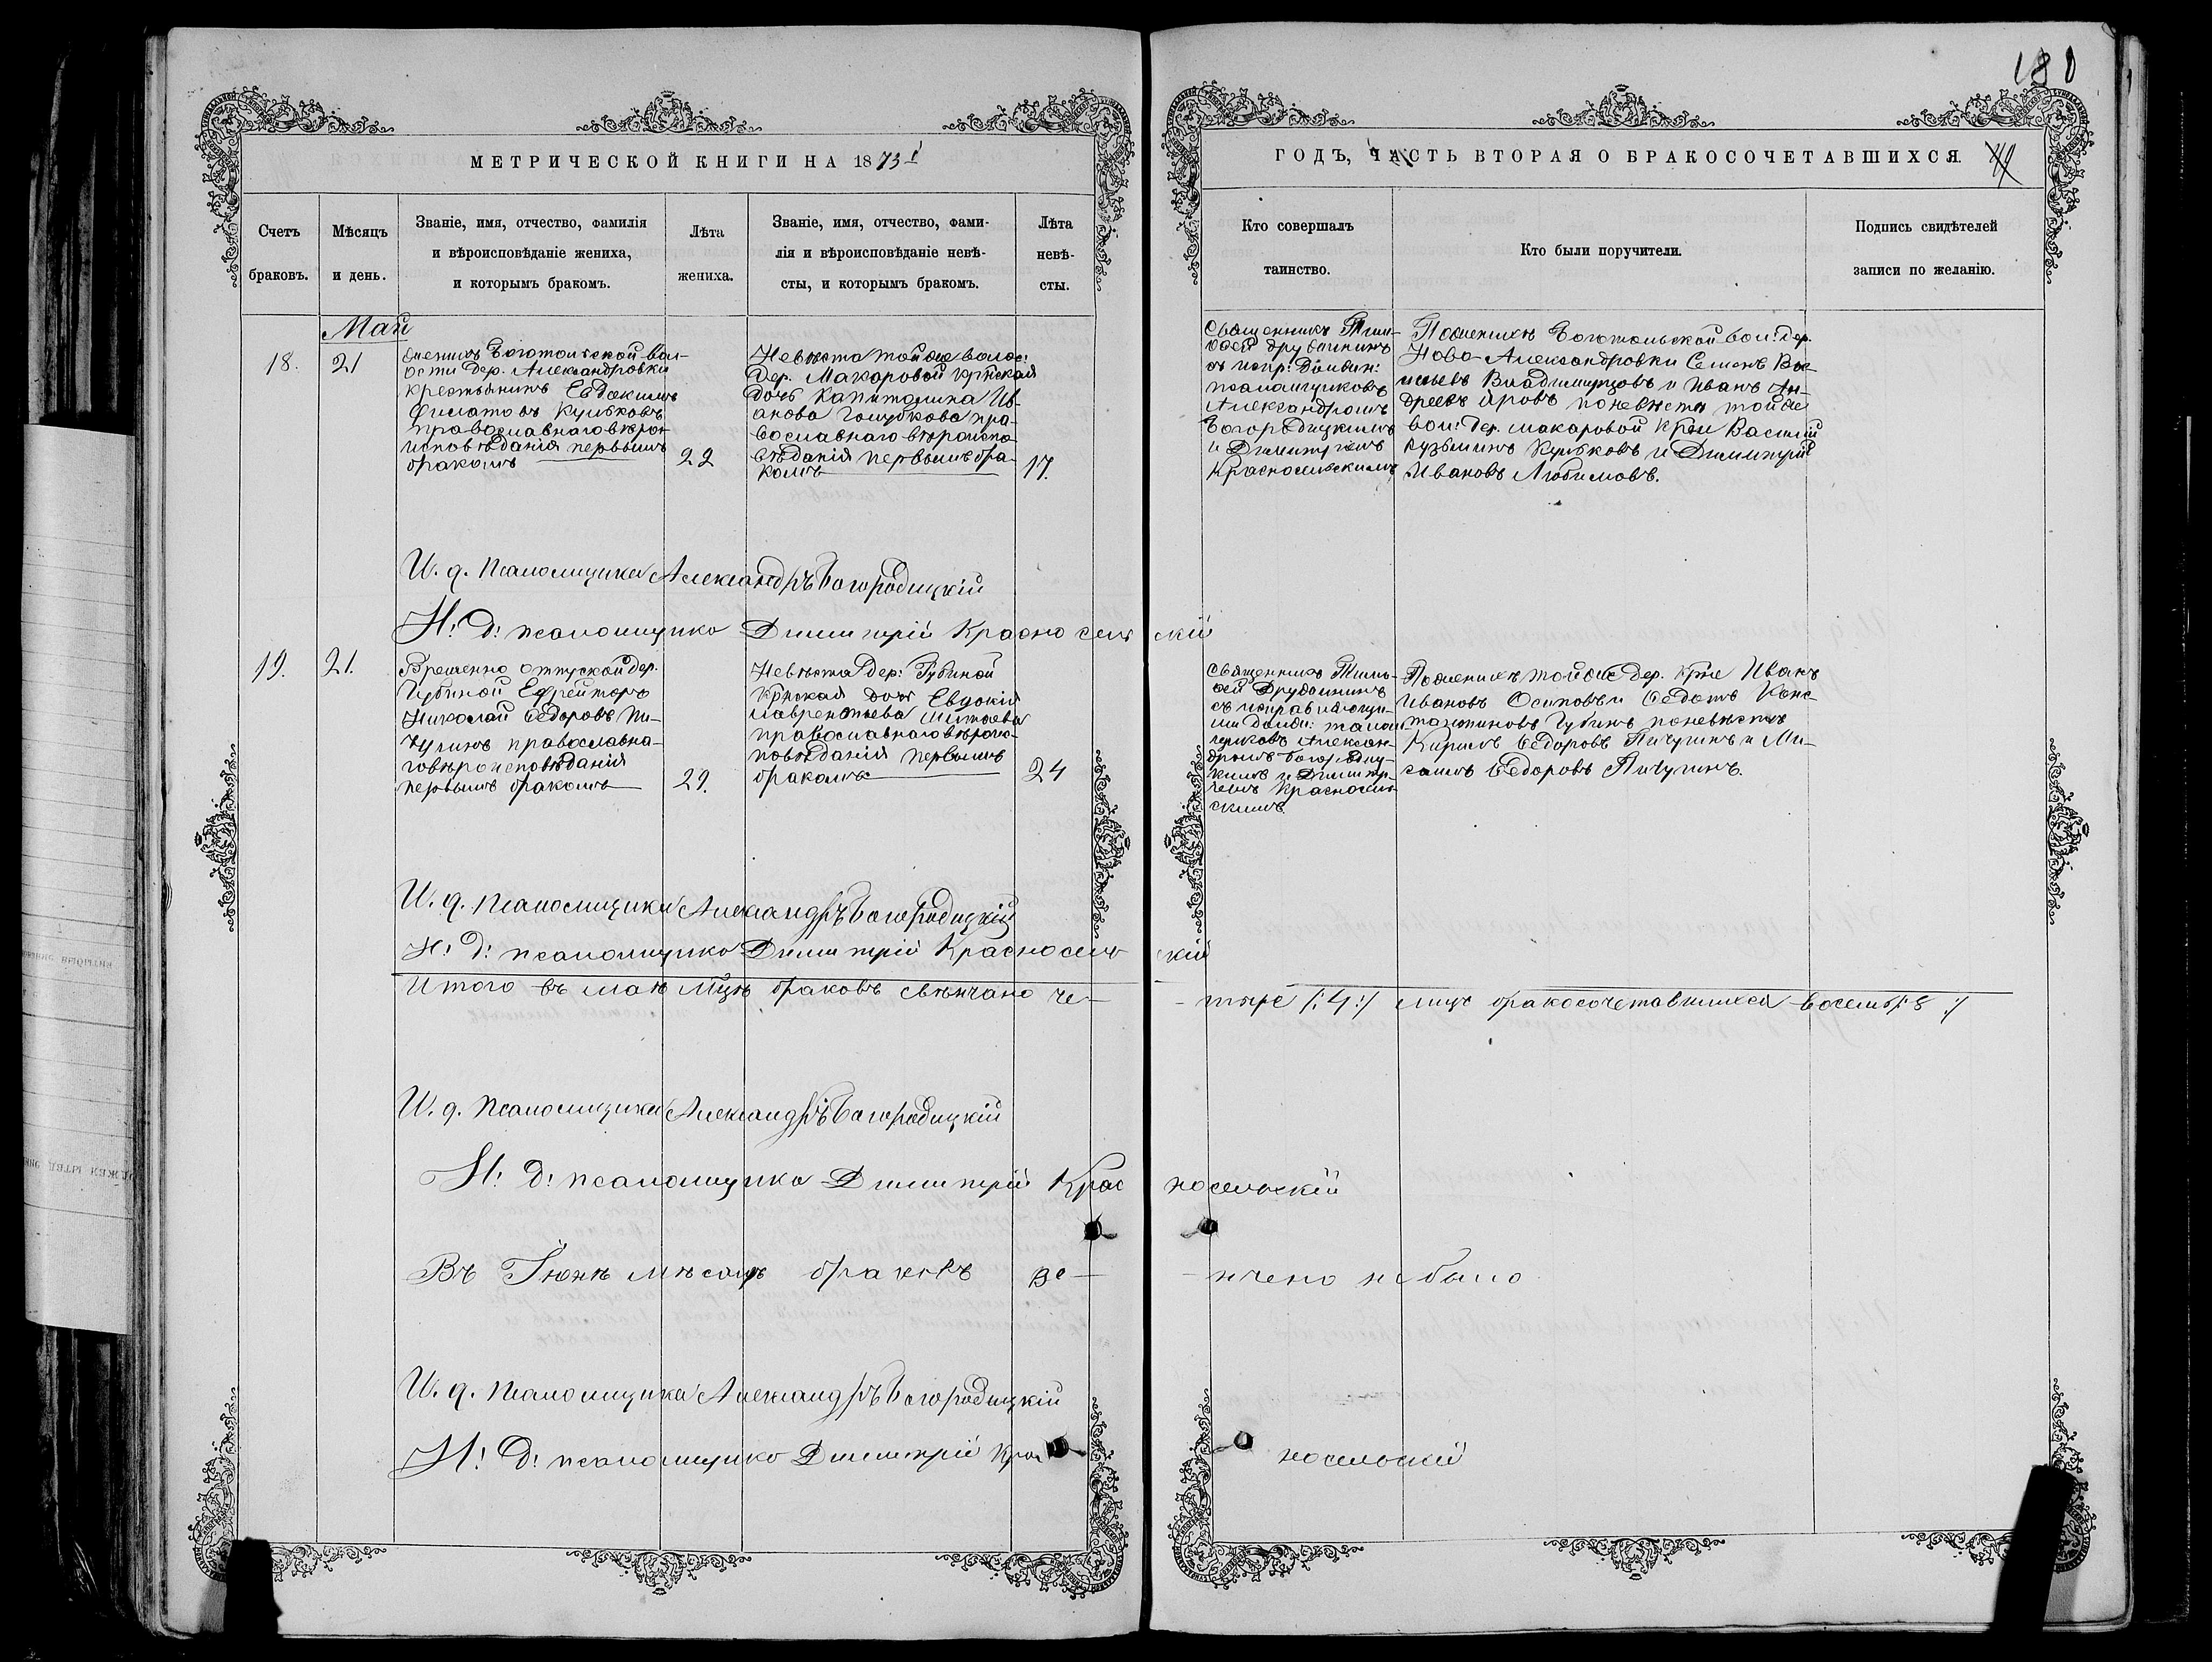 180
МЕТРИЧЕСКОЙ КНИГИ НА 1873 й
ГОДЪ, ЧАСТЬ ВТОРАЯ О БРАКОСОЧЕТАВШИХСЯ.
Счетъ
браковъ.
Мѣсяцъ
и день.
Званіе, имя, отчество, фамилія
и вѣроисповѣданіе жениха,
и которымъ бракомъ.
Лѣта
жениха.
Званіе, имя, отчество, фами-
лія и вѣроисповѣданіе невѣ-
сты, и которымъ бракомъ.
Лѣта
невѣ-
сты.
Кто совершалъ
таинство.
Кто были поручители.
Подпись свидѣтелей
записи по желанію.
Май
18.
21
Женихъ Боготольской вол-
ости дер. Александровки
крестьянинъ Евдокимъ
Филатовъ Кулбковъ
православнаго вѣро-
исповѣданія первымъ
бракомъ
22
Невѣста той же волос:
дер. Макаровой крѣнская
дочь Капитолина Ив-
анова Голубкова пра-
вославнаго вѣроиспо-
вѣданія первымъ бра-
комъ
17.
Священникъ Тимо-
фей Дружининъ
съ испр: должн:
псаломщиковъ
Александромъ
Богородицкимъ
и Димитріемъ
Красносельскимъ
По женихѣ Боготольской вол: дер.
Ново-Александровки Семенъ Вас-
ильевъ Владимирцовъ и Иванъ Ан-
дреевъ Яровъ по невѣстѣ той же
вол: дер. Макаровой крѣе Василій
Кузьминъ Кулбковъ и Димитрій
Ивановъ Любимовъ.
И. д. Псаломщика Александръ Богородицкій
И: д: псаломщика Димитрій Красносельскій
19.
21.
Временно отпускной дер.
Губиной Ефрейторъ
Николай Ѳедоровъ Пи-
чугинъ православна-
го вѣроисповѣданія
первымъ бракомъ
29.
Невѣста дер: Губиной
крѣнская дочь Евдокія
Лаврентьева
православнаго вѣроис-
повѣданія первымъ
бракомъ
24
Священникъ Тимо-
фей Дружининъ
съ исправляющи-
ми должн: псалом-
щиковъ Алексан-
дромъ Богородиц-
кимъ и Димитрі-
емъ Красносель-
скимъ
По женихѣ той же дер. крѣе Иванъ
Ивановъ Осиповъ и Ѳедотъ Конс-
тантиновъ Губинъ по невѣстѣ
Кирилъ Ѳедоровъ Пичугинъ и Ми-
хаилъ Ѳедоровъ Пичугинъ.
И. д. Псаломщика Александръ Богородицкій
И: д: псаломщика Димитрій Красносельскій
Итого въ маѣ мцѣ браковъ свѣнчано че-
-тыре /:4:/ лицъ бракосочетавшихся восемь /:8:/
И. д. Псаломщика Александръ Богородицкій
И: д: псаломщика Димитрій Красносельскій
Въ Іюнѣ мѣсяцѣ браковъ вѣ-
-нчено не было
И. д. Псаломщика Александръ Богородицкій
И: д: псаломщика Димитрій Красносельскій